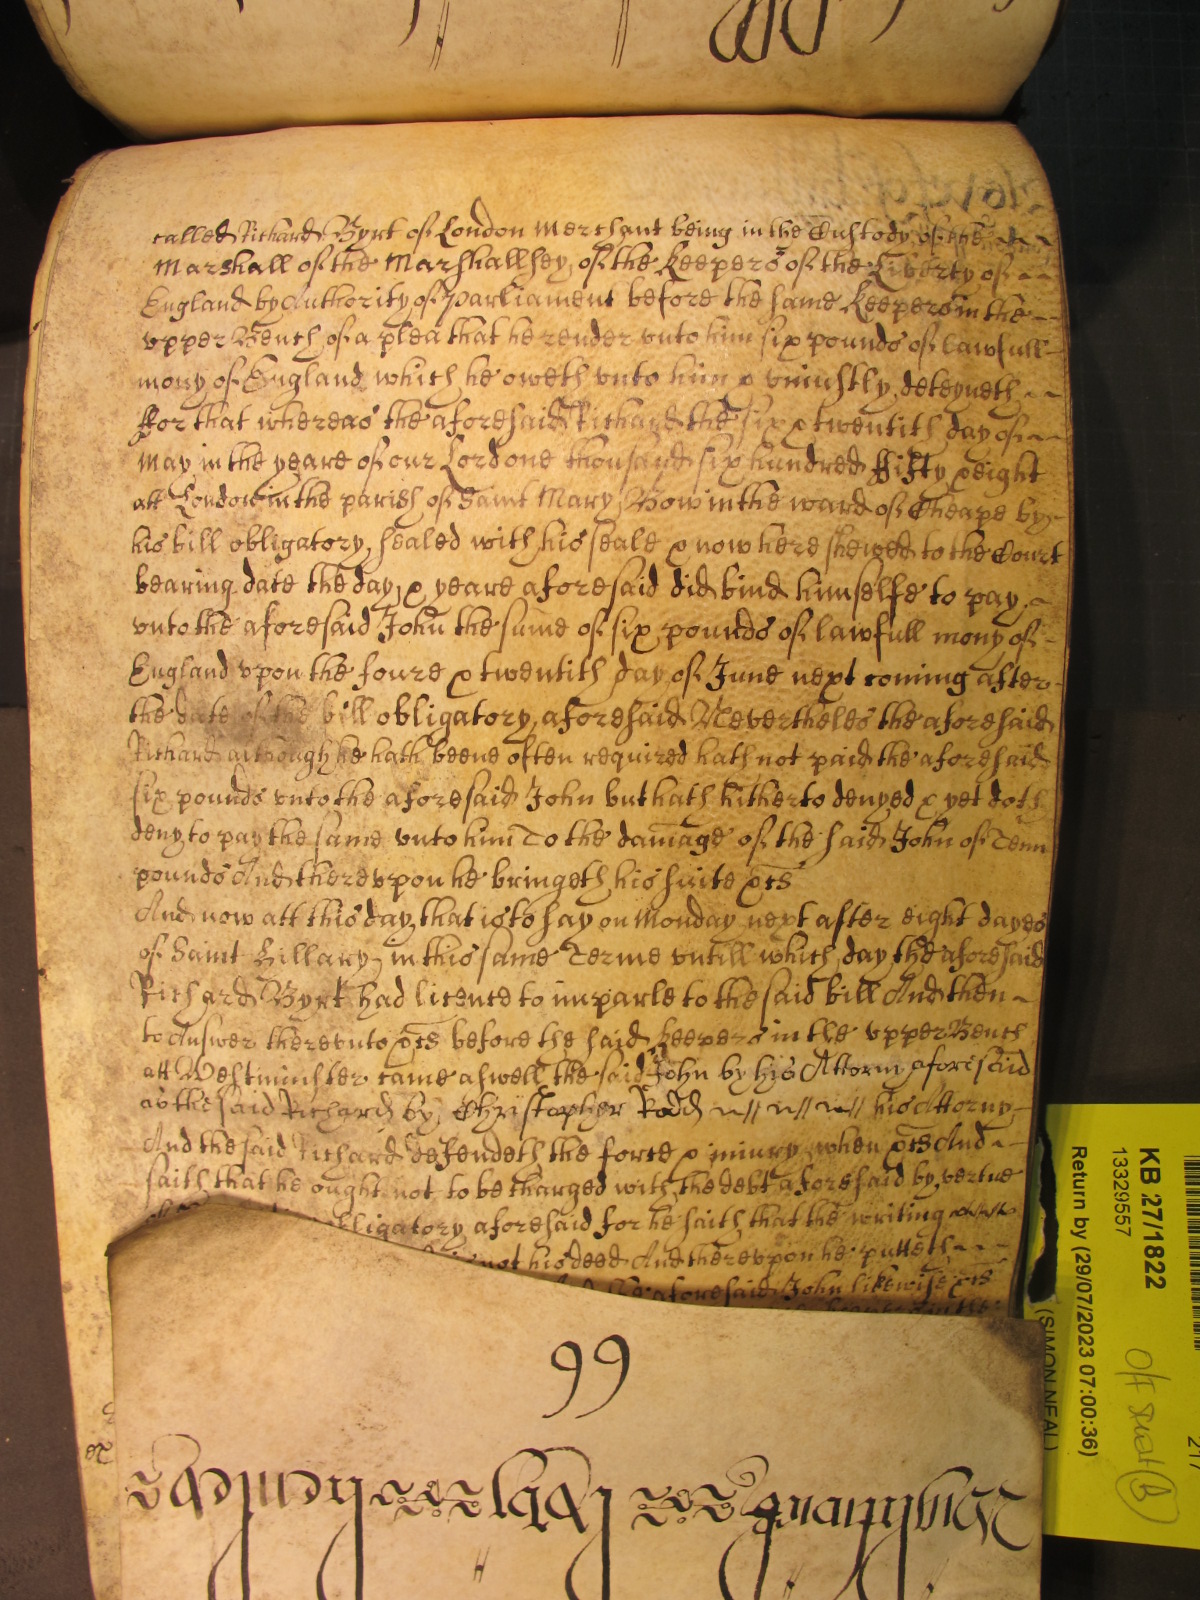 called Richard Byrt of London Merchant being in the Custody of the
Marshall of the Marshallsey of the Keepers of the Liberty of
England by Authority of Parliament before the same Keepers in the
vpper Bench of a plea that he render vnto him six pounds of lawfull
mony of England which he oweth vnto him & vniustly deteyneth
For that whereas the aforesaid Richard the six & twentith day of
May in the yeare of our Lord one thousand six hundred ffifty & eight
att London in the parish of Saint Mary Bow in the ward of Cheape by
his bill obligatory sealed with his seale & now here shewed to the Court
bearing date the day & yeare aforesaid did bind himselfe to pay
vnto the aforesaid John the sume of six pounds of lawfull mony of
England vpon the foure & twentith day of June next coming after
the date of the bill obligatory aforesaid Neverthelés the aforesaid
Richard although he hath beene often required hath not paid the aforesaid
six pounds vnto the aforesaid John but hath hitherto denyed & yet doth
deny to pay the same vnto him To the damage of the said John of Tenn
pounds And therevpon he bringeth his suite &ts
And now att this day that is to say on Monday next after eight dayes
of Saint Hillary in this same Terme vntill which day the aforesaid
Richard Byrt had licence to imparle to the said bill And then
to Answer therevnto &ts before the said keepers in the vpper Bench
att Westminster came aswell the said John by his Attorny aforesaid
as the said Richard by Christopher Rodd his Attorny
And the said Richard defendeth the force & iniury when &ts And
saith that he ought not to be charged with the debt aforesaid by vertue
obligatory aforesaid for he saith that the writing
not his deed And therevpon he putteth
the aforesaid John likewise &ts
99
KB 27/1822
13329557
Return by (29/07/2023 07:00:36)
(SIMON NEAL)
217